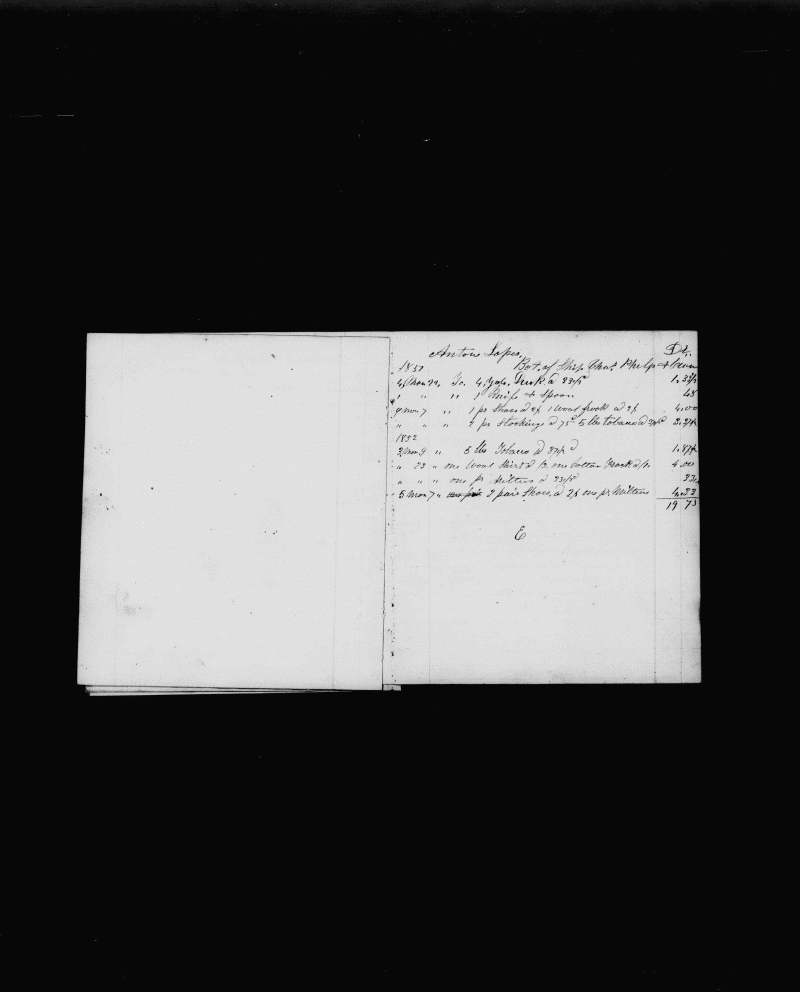 Antone Lopes, Dr.
1851 Bot. of Ship Chas. Phelps & Owners
4 Mon 22, To. 4 Yds. Duck @ 33
" " " 1 Knife & Spoon
9 mon 7 " 1 pr Shoes @ 2$ 1 Wool frock @ 2$ 4.00
" " " pr Stockings @ 75c 5 lbs tobacco @
1852
3 Mon 9 " 5 lbs Tobacco @ 37½ 1.87½
" 23 " one Wool Shirt @ one Cotton Frock @ 4.00
" " " one pr Mittens @ 33
5 Mon 7 " 2 pair Shoes @ 2$ one pr. Mittens 4.33
19 73
E